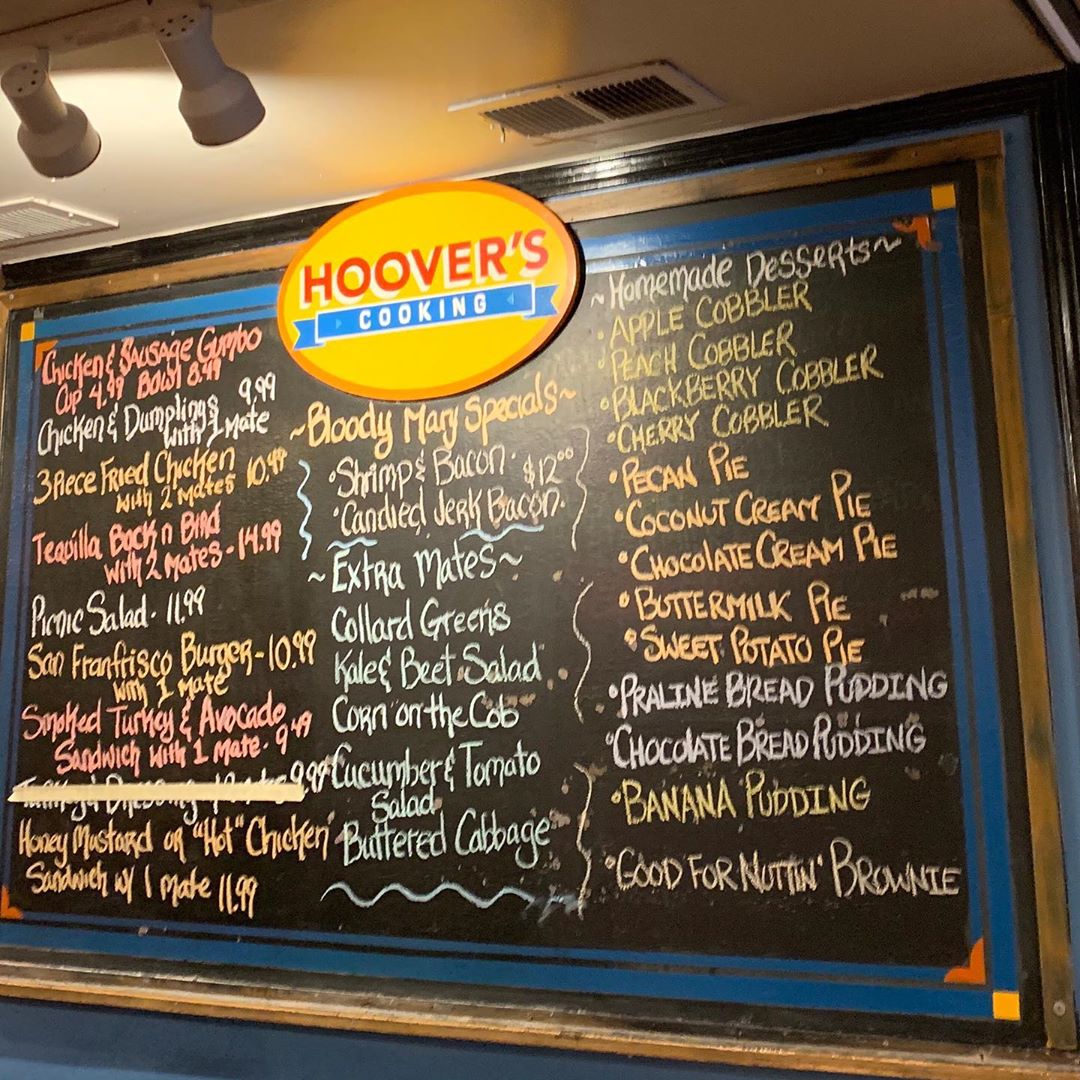 HOOVER'S
COOKING
Chicken & Sausage Gumbo
Cup 4.99 Bowl 8.49
Chicken & Dumplings 9.99
with 1 Mate
3 Piece Fried Chicken
with 2 Mates 10.49
Tequilla Bock n Bird
with 2 Mates - 14.99
Picnic Salad - 11.99
San Franfrisco Burger - 10.99
with 1 Mate
Smoked Turkey & Avocado
Sandwich with 1 Mate - 9.49
9.99
Honey Mustard or "Hot" Chicken
Sandwich w/ 1 Mate 11.99
~Bloody Mary Specials~
•Shrimp & Bacon •
$12.00
•Candied Jerk Bacon •
~Extra Mates~
Collard Greens
Kale & Beet Salad
Corn on the Cob
Cucumber & Tomato
Salad
Buttered Cabbage
~Homemade Desserts~
•APPLE COBBLER
•PEACH COBBLER
•BLACKBERRY COBBLER
•CHERRY COBBLER
•PECAN PIE
•COCONUT CREAM PIE
•CHOCOLATE CREAM PIE
•BUTTERMILK PIE
•SWEET POTATO PIE
•PRALINE BREAD PUDDING
•CHOCOLATE BREAD PUDDING
•BANANA PUDDING
•"GOOD FOR NUTTIN' BROWNIE